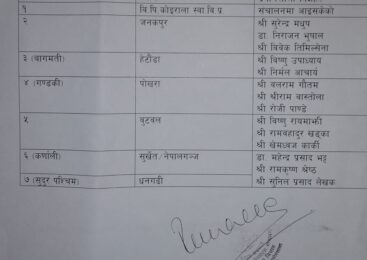 १ वि.पि.कोइराला स्वा.वि.प्र संचालनमा आइसकेको
२ जनकपुर श्री सुरेन्द्र मधुप
डा. निराजन भूषाल
श्री विवेक तिमिल्सेना
३ (बागमती) हेटौंडा श्री विष्णु उपाध्याय
श्री निर्मल आचार्य
४ (गण्डकी) पोखरा श्री बलराम गौतम
श्री श्रीराम बास्तोला
श्री रोजी पाण्डे
५ बुटवल श्री विष्णु रायमाझी
श्री रामबहादुर खड्का
श्री खेमध्वज कार्की
६ (कर्णाली) सुर्खेत/नेपालगञ्ज डा. महेन्द्र प्रसाद भट्ट
श्री रामकृष्ण श्रेष्ठ
७ (सुदुर पश्चिम) धनगढी श्री सुनिल प्रसाद लेखक